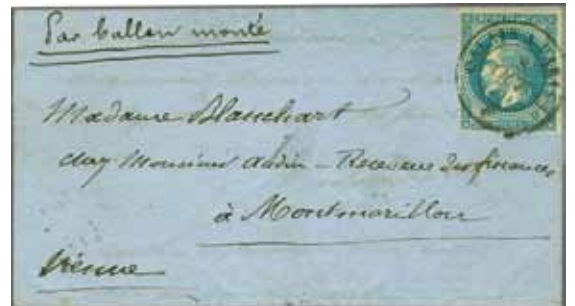 Par ballon monté
Madame Blanchart
chez Monsieur Audin - Receveur des finances
à Montmorillon
Vienne